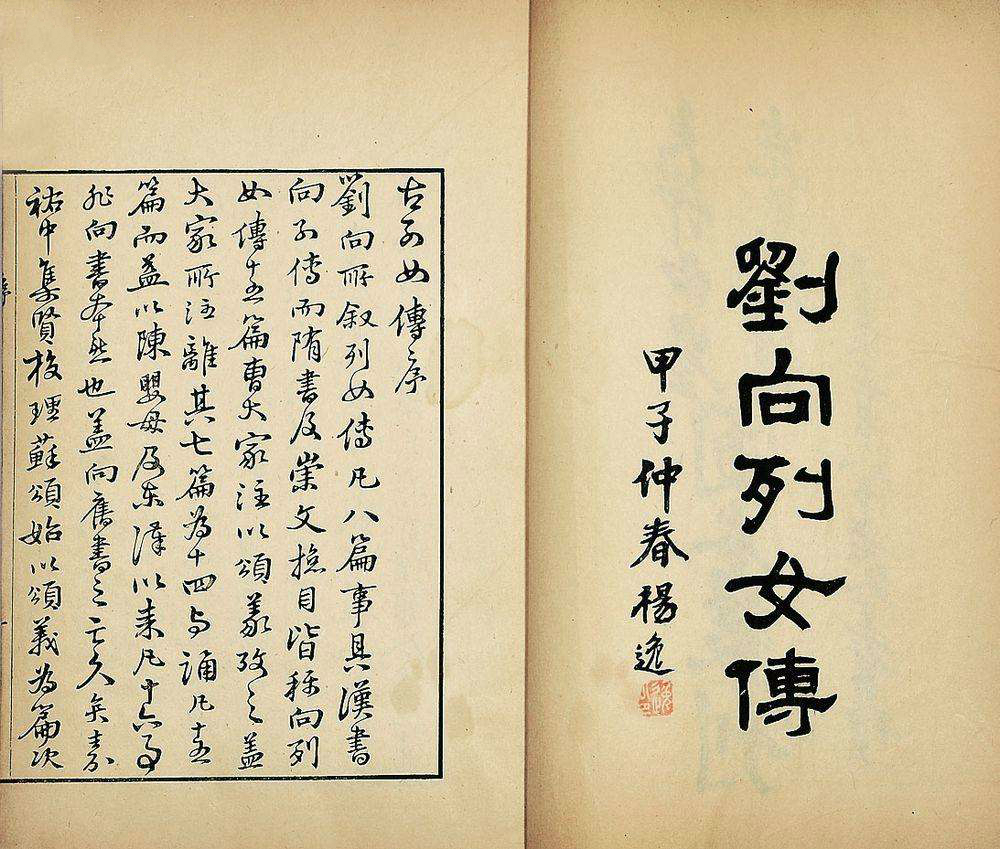 劉向列女傳
甲子仲春楊逸
古列女傳序
劉向所叙列女傳凡八篇事具漢書
向列傳而隋書及崇文總目皆稱向列
女傳十五篇曹大家注以頌義攷之蓋
大家所注離其七篇為十四与頌凡十五
篇而益以陳嬰母及东漢以来凡十六事
非向書本然也盖向舊書之亡久矣嘉
祐中集賢校理蘇頌始以頌義為篇次